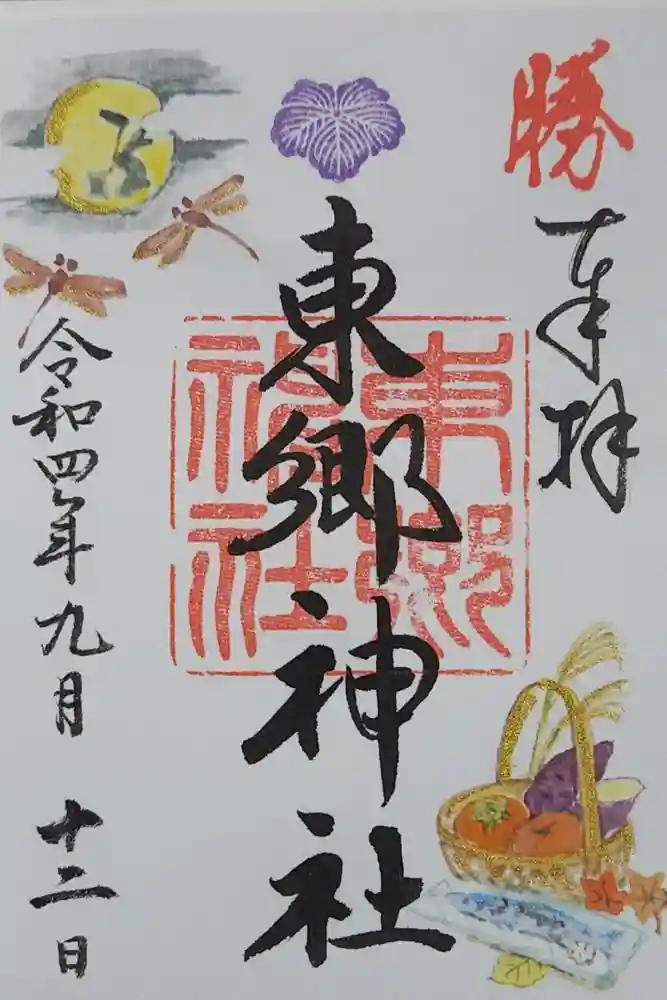 勝
奉拝
東郷神社
東郷神社
令和四年九月 十二日